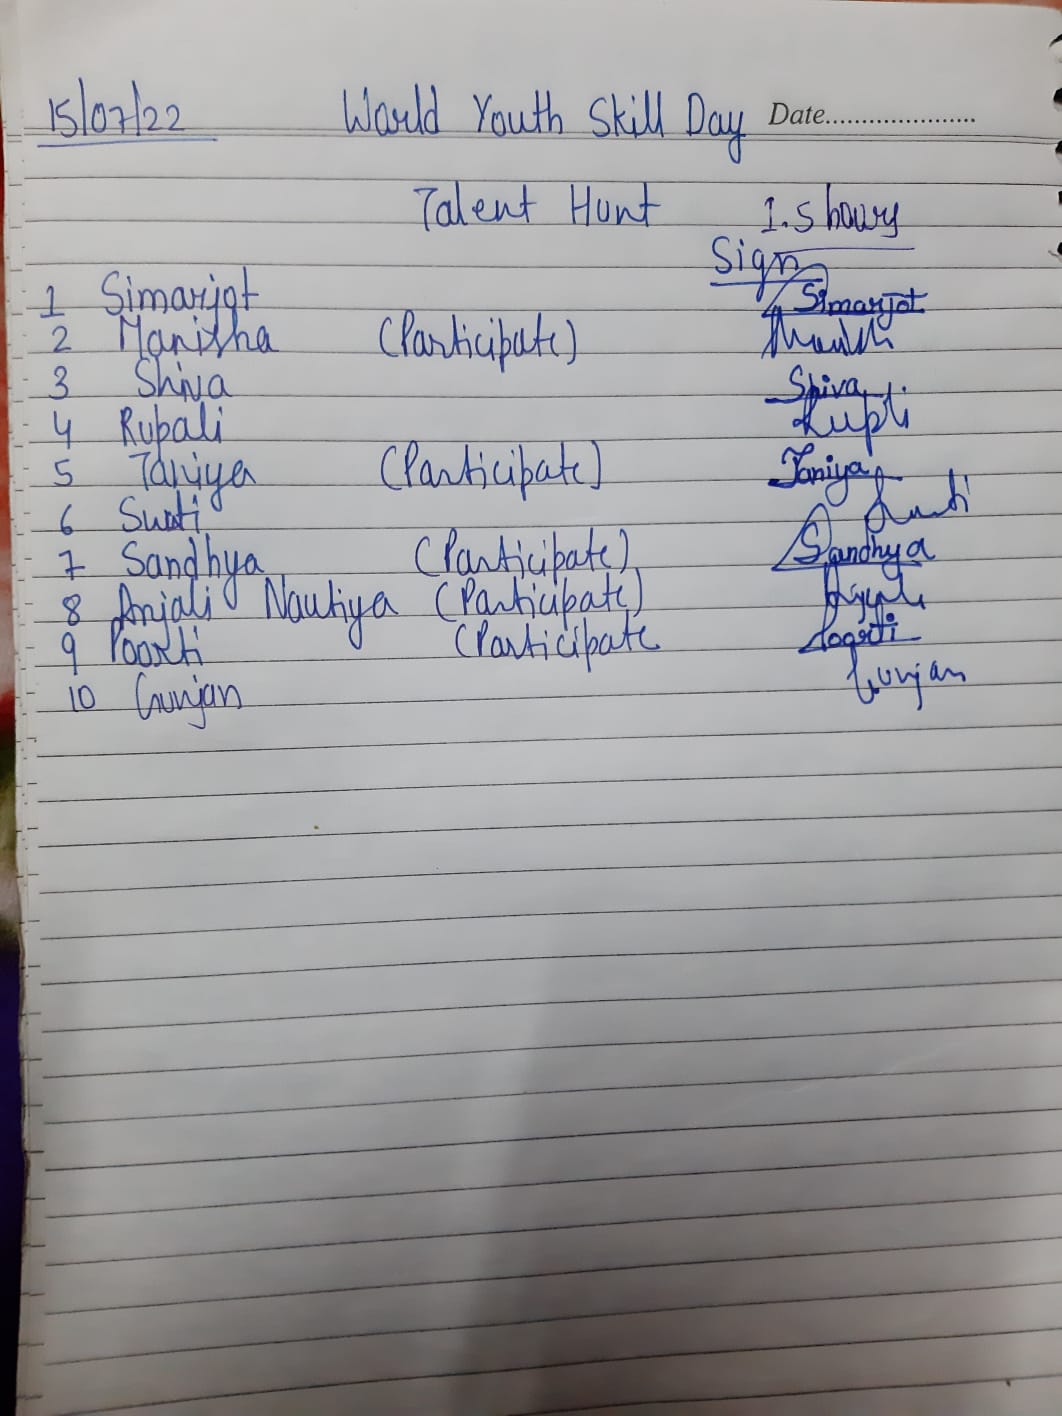 15/07/22 World Youth Skill Day Date.....................
Talent Hunt 1.5 hours
Sign
1 Simarjot Simarjot
2 Manisha (Participate)
3 Shiva Shiva
4 Rupali Rupli
5 Taniya (Participate) Taniya
6
7 Sandhya (Participate) Sandhya
8 Anjali Nautiya (Participate)
9 Poorti (Participate Poorti
10 Gunjan Gunjan